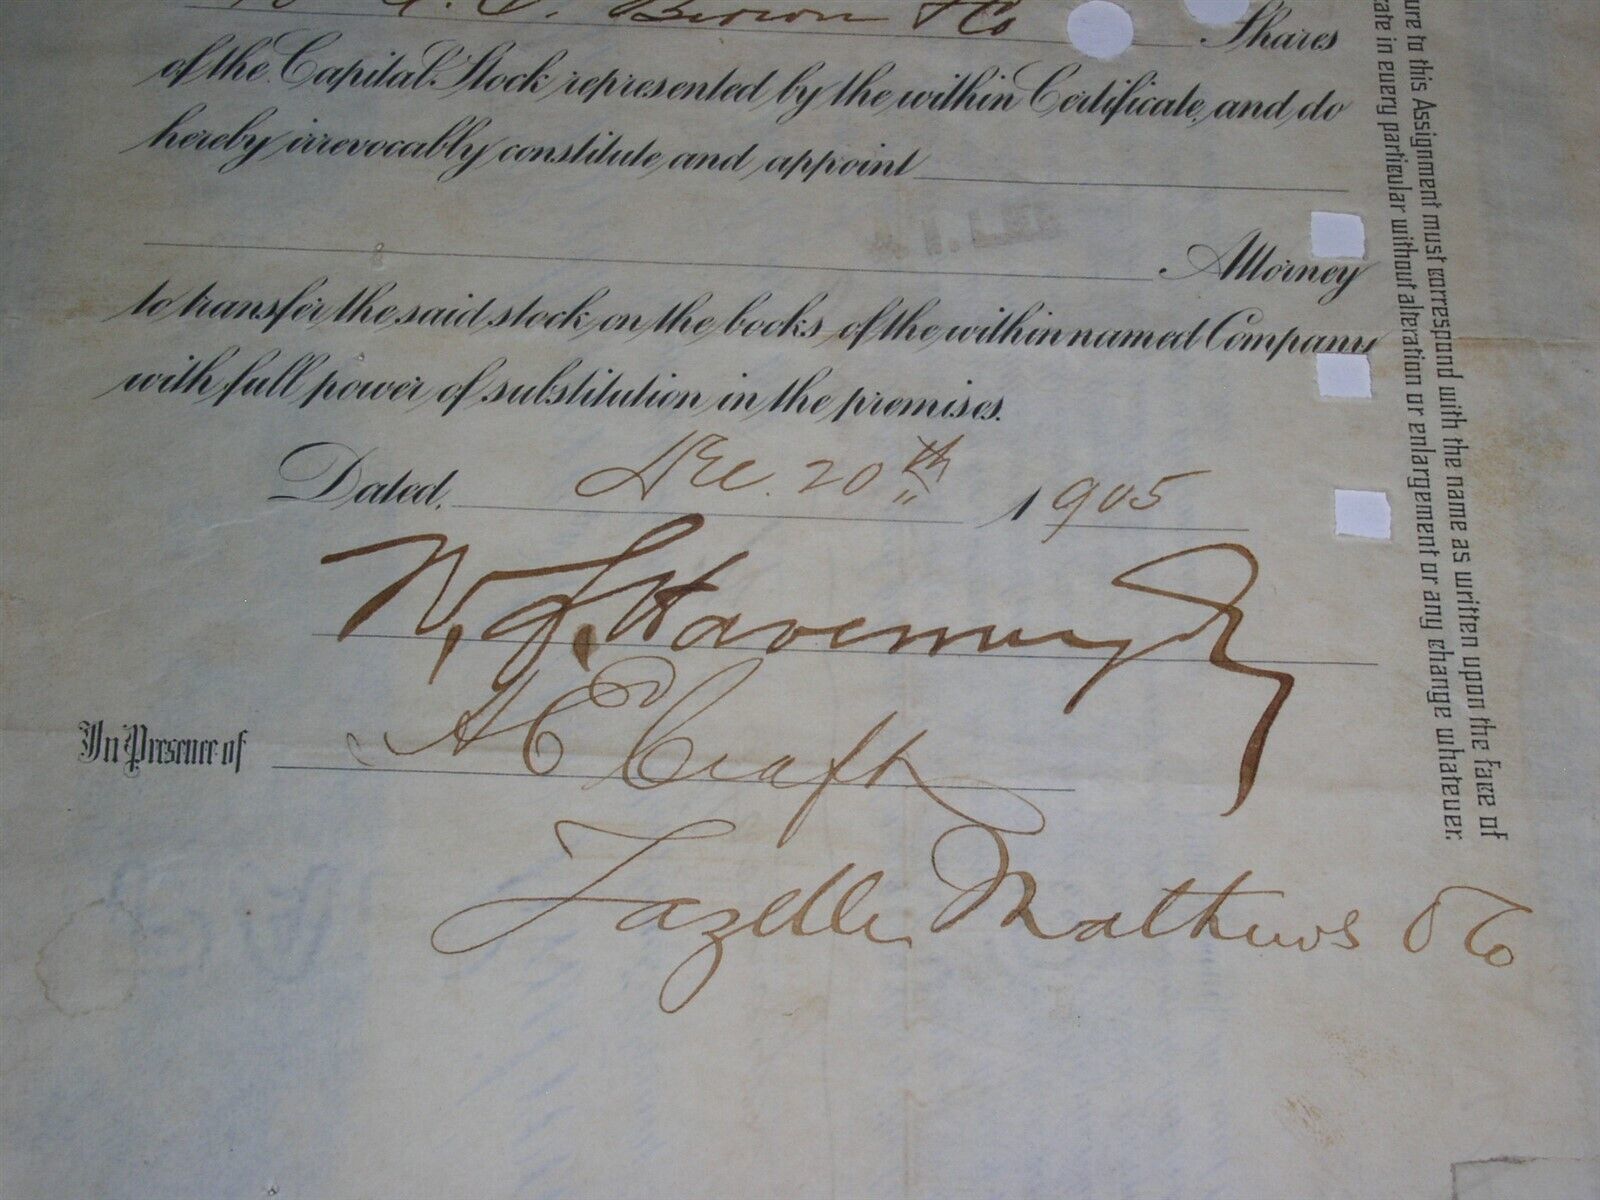 Brown & Co Shares
of the Capital Stock represented by the within Certificate, and do
hereby irrevocably constitute and appoint
Attorney
to transfer the said stock on the books of the within named Company
with full power of substitution in the premises.
Dated, Dec. 20th 1905
In Presence of
H E Craft
Mathews & Co
ure to this Assignment must correspond with the name as written upon the face of
cate in every particular without alteration or enlargement or any change whatever.